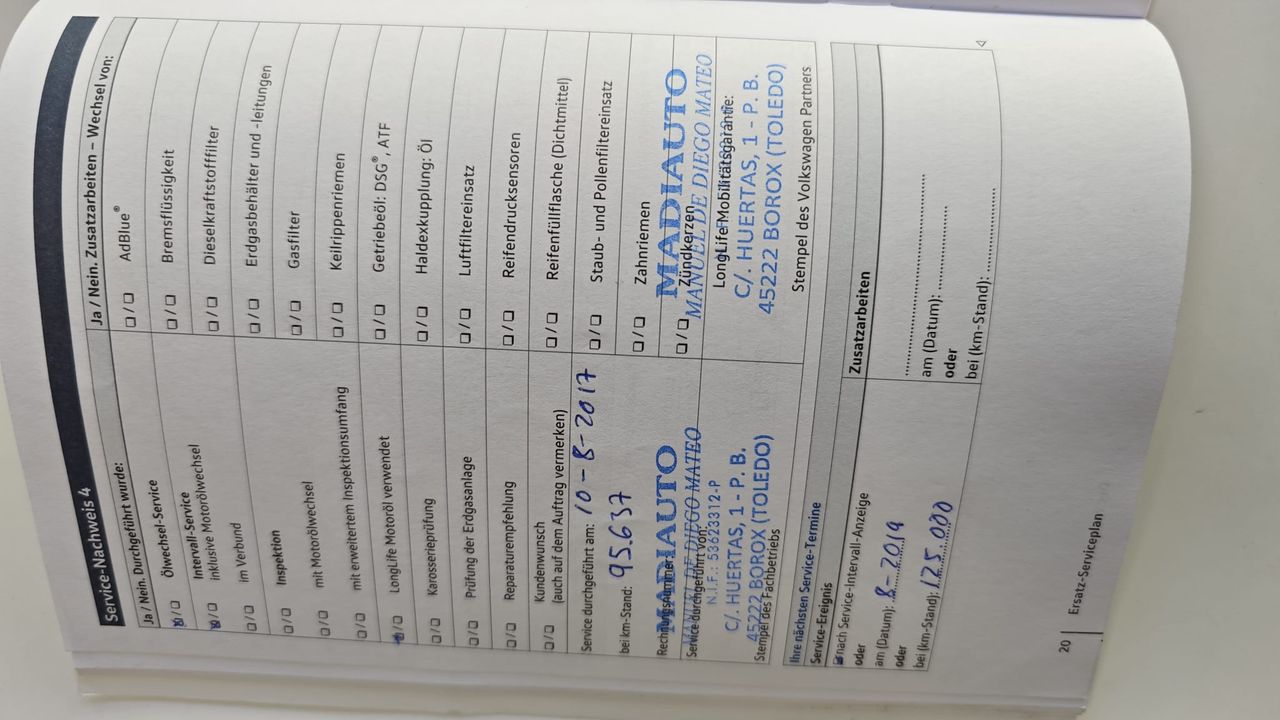 Service-Nachweis 4
Ja / Nein. Durchgeführt wurde:
Ölwechsel-Service
Intervall-Service
inklusive Motorölwechsel
im Verbund
Inspektion
mit Motorölwechsel
mit erweitertem Inspektionsumfang
LongLife Motoröl verwendet
Karosserieprüfung
Prüfung der Erdgasanlage
Reparaturempfehlung
Kundenwunsch
(auch auf dem Auftrag vermerken)
Service durchgeführt am: 10-8-2017
bei km-Stand: 95.637
Rechnungsnummer:
MADIAUTO
MANUEL DE DIEGO MATEO
Service durchgeführt von:
N.I.F.: 53623312-P
C/. HUERTAS, 1 - P. B.
45222 BOROX (TOLEDO)
Stempel des Fachbetriebs
Ja / Nein. Zusatzarbeiten – Wechsel von:
AdBlue®
Bremsflüssigkeit
Dieselkraftstofffilter
Erdgasbehälter und -leitungen
Gasfilter
Keilrippenriemen
Getriebeöl: DSG®, ATF
Haldexkupplung: Öl
Luftfiltereinsatz
Reifendrucksensoren
Reifenfüllflasche (Dichtmittel)
Staub- und Pollenfiltereinsatz
Zahnriemen
MADIAUTO
Zündkerzen
MANUEL DE DIEGO MATEO
LongLife Mobilitätsgarantie:
C/. HUERTAS, 1 - P. B.
45222 BOROX (TOLEDO)
Stempel des Volkswagen Partners
Ihre nächsten Service-Termine
Service-Ereignis
nach Service-Intervall-Anzeige
oder
am (Datum): 8-2019
oder
bei (km-Stand): 125.000
Zusatzarbeiten
am (Datum):
oder
bei (km-Stand):
20 | Ersatz-Serviceplan